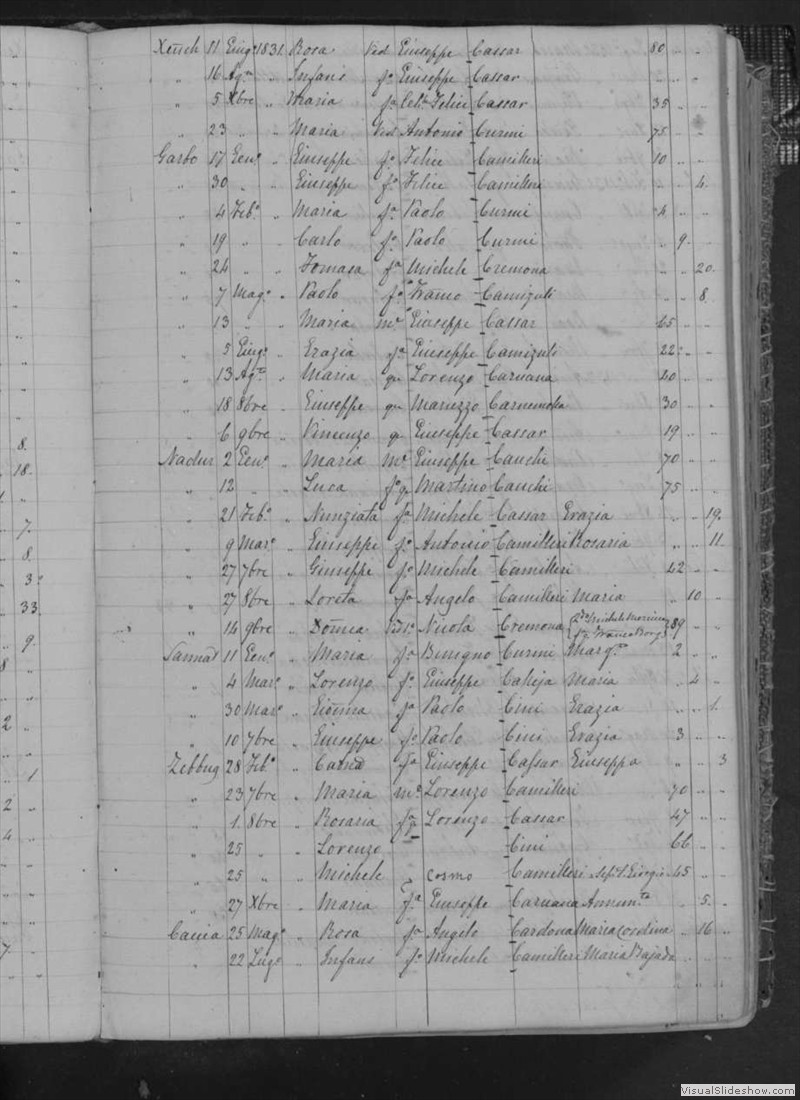 8.
18.
7.
8.
3.
33.
9.
8
2
1
2
4
7
Xeuch 11 Giug. 1831. Rosa Ved Giuseppe Cassar 80 " "
" 16 Ag. " Infans fo Giuseppe Cassar " " "
" 5 Xbre " Maria fa Felice Cassar 35 " "
" 23 " " Maria Ved Antonio Curmi 75 " "
Garbo 17 Gen. " Giuseppe fo Felice Camilleri 10 " "
" 30 " " Giuseppe fo Felice Camilleri " " 4.
" 4 Feb. " Maria fa Paolo Curmi 4. " "
" 19 " " Carlo fo Paolo Curmi " 9. "
" 24 " " Tomasa fa Michele Cremona " " 20.
" 7 Mago " Paolo fo Franco Camizuli " " 8.
" 13 " " Maria me Giuseppe Cassar 65 " "
" 5 Giugo " Grazia fa Giuseppe Camizuli 22 " "
" 13 Agto " Maria qu Lorenzo Caruana 40 " "
" 18 8bre " Giuseppe qu Maruzzo 30 " "
" 6 9bre " Vincenzo q Giuseppe Cassar 19 " "
Nadur 2 Gen. " Maria me Giuseppe Cauchi 70 " "
" 12 " " Luca fo q Martino Cauchi 75 " "
" 21 Feb. " Nunziata fa Michele Cassar Grazia " " 19.
" 9 Maro " Giuseppe fo Antonio Camilleri Rosaria " " 11
" 27 7bre " Giuseppe fo Michele Camilleri 42 " "
" 27 8bre " Loreta fa Angelo Camilleri Maria " 10 "
" 14 9bre " Domca Ved Nicola Cremona 89 " "
Sannat 11 Gen. " Maria fa Benigno Curmi Marga 2 " "
" 4 Maro " Lorenzo fo Giuseppe Calleja Maria " 4 "
" 30 Maro " Gionna fa Paolo Cini Grazia " " 1.
" 10 7bre " Giuseppe fo Paolo Cini Grazia 3 " "
Zebbug 28 Feb. " Catna fa Giuseppe Cassar Giuseppa " " 3
" 23 7bre " Maria me Lorenzo Camilleri 70 " "
" 1. 8bre " Rosaria fa q Lorenzo Cassar 47 " "
" 25 " " Lorenzo Cini 66 " "
" 25 " " Michele q Cosmo Camilleri 45 " "
" 27 Xbre " Maria fa Giuseppe Caruana Annunta " 5. "
Caccia 25 Mago " Rosa fa Angelo Cardona Maria " 16 "
" 22 Lugo " Infans fo Michele Camilleri Maria Bajada " " "
VisualSlideshow.com